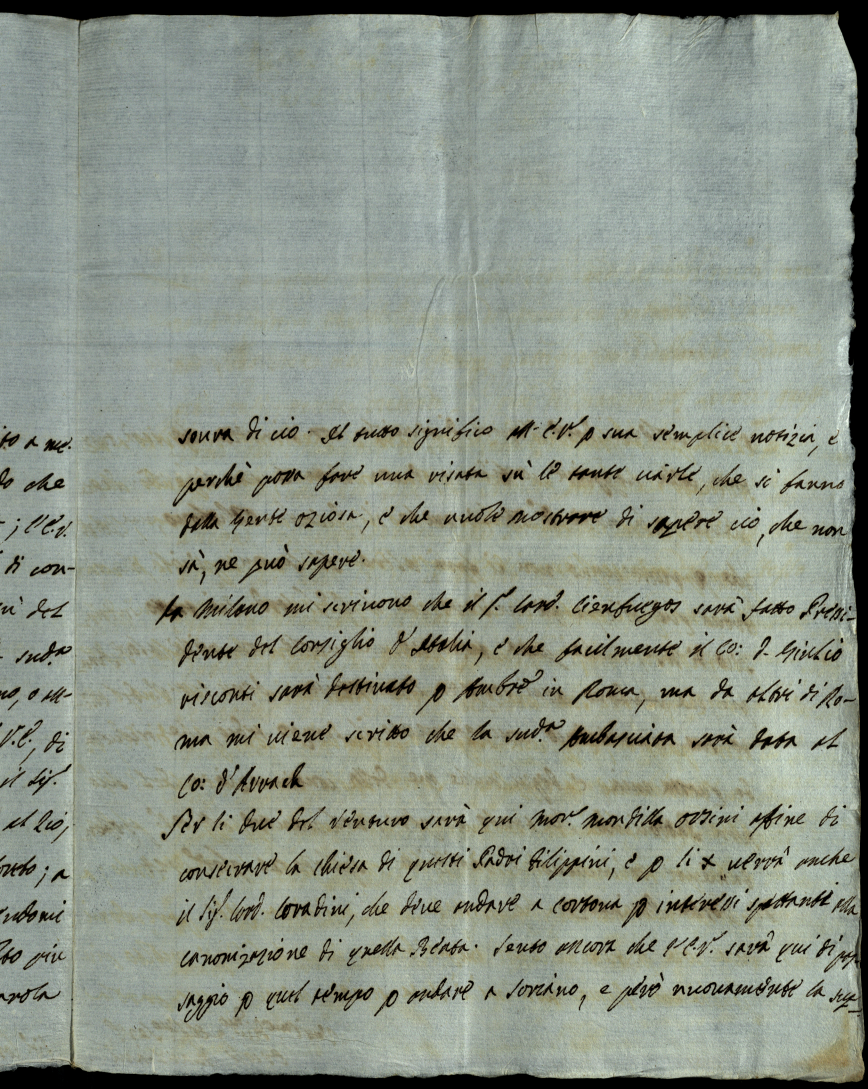 to a me.
do che
; l'E.V.
di con-
del
sud.ª
no, o all-
V.E., di
il Sig.
al Zio,
; a
più
arola
soura di ciò. Il tutto significo all'E.V. p sua semplice notizia, e
perchè possa fare una risata sù le tante ciarle, che si fanno
dalla Gente oziosa, e che vuole mostrare di sapere ciò, che non
sà, ne può sapere.
Da Milano mi scrivono che il S.r Card. Cienfuegos sarà fatto Presi-
dente del Consiglio d'Italia, e che facilmente il Co: D. Giulio
Visconti sarà destinato p Ambre in Roma, ma da altri di Ro-
ma mi viene scritto che la sud.ª Ambasciata sarà data al
Co: d'Arrach
Per li due del venturo sarà qui Mon.r Mondilla Orsini affine di
consecrare la chiesa di questi Padri Filippini, e p li x verrà anche
il Sig. Card. Coradini, che deve andare a Cortona p interessi spettanti alla
canonizazione di quella Beata. Sento ancora che l'E.V. sarà qui di pas-
saggio p quel tempo p andare a Soriano, e però nuovamente la sup-